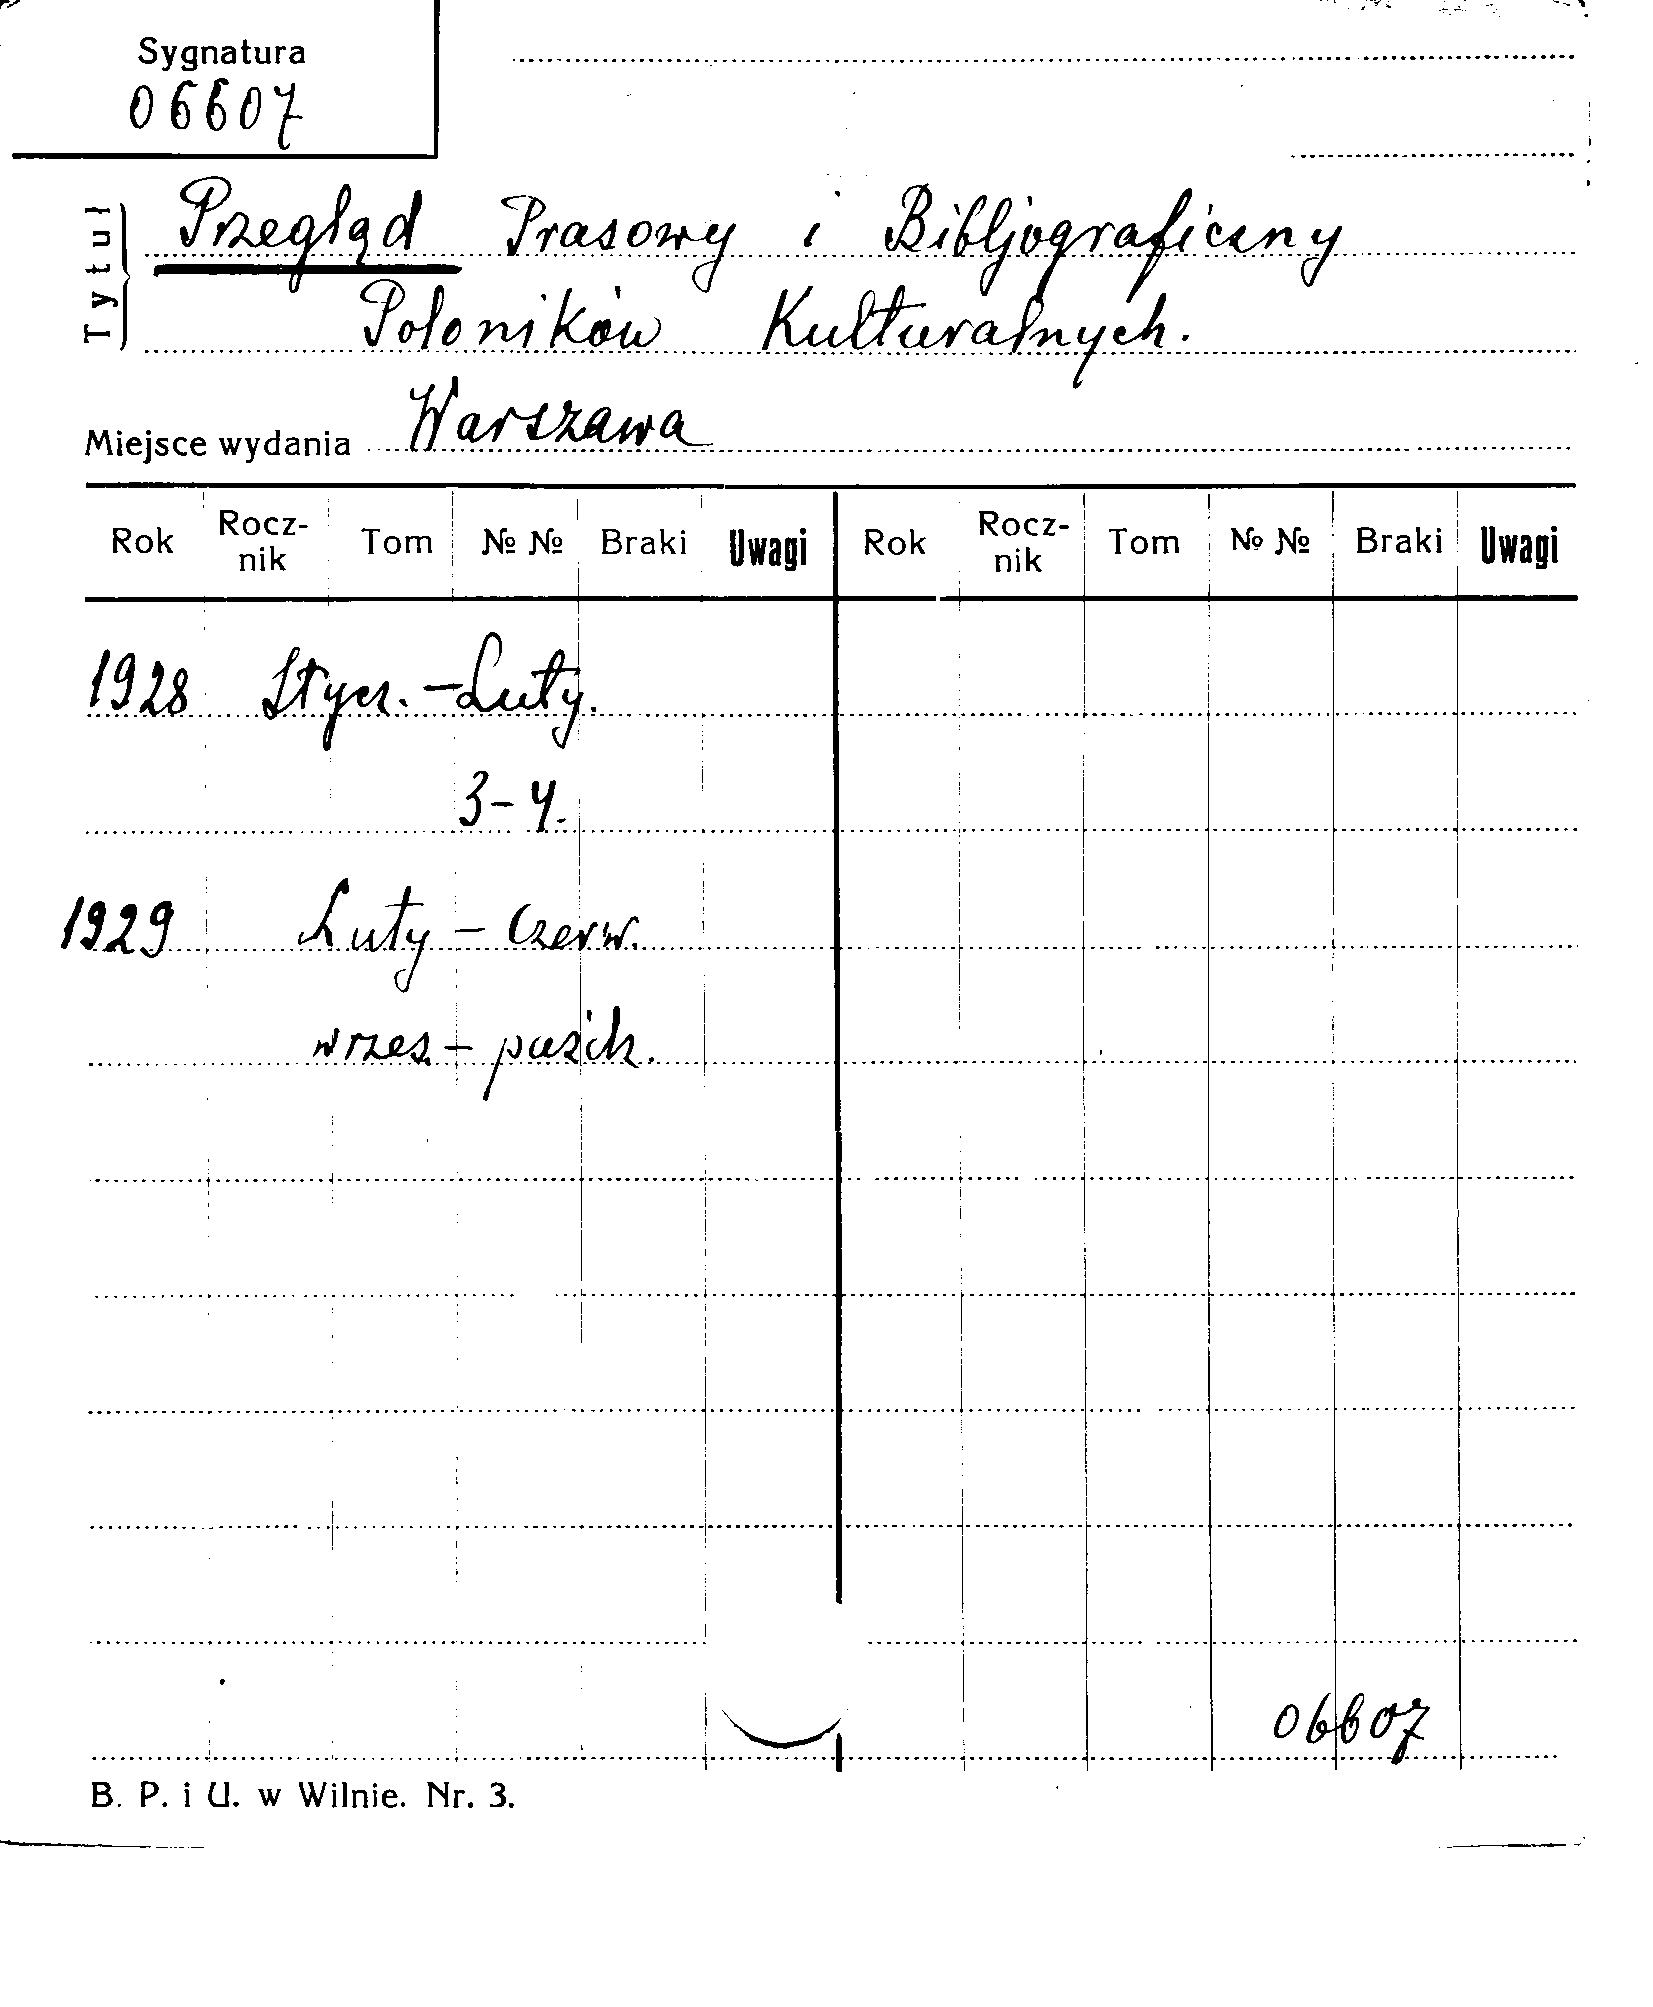 Sygnatura
06607
Tytuł
Przegląd Prasowy i Bibljograficzny
Poloników Kulturalnych.
Miejsce wydania Warszawa
Rok Rocz-nik Tom № № Braki Uwagi Rok Rocz-nik Tom № № Braki Uwagi
1928 Stycz. - Luty.
3-4.
1929 Luty - Czerw.
wrzes - paźdz.
06607
B. P. i U. w Wilnie. Nr. 3.